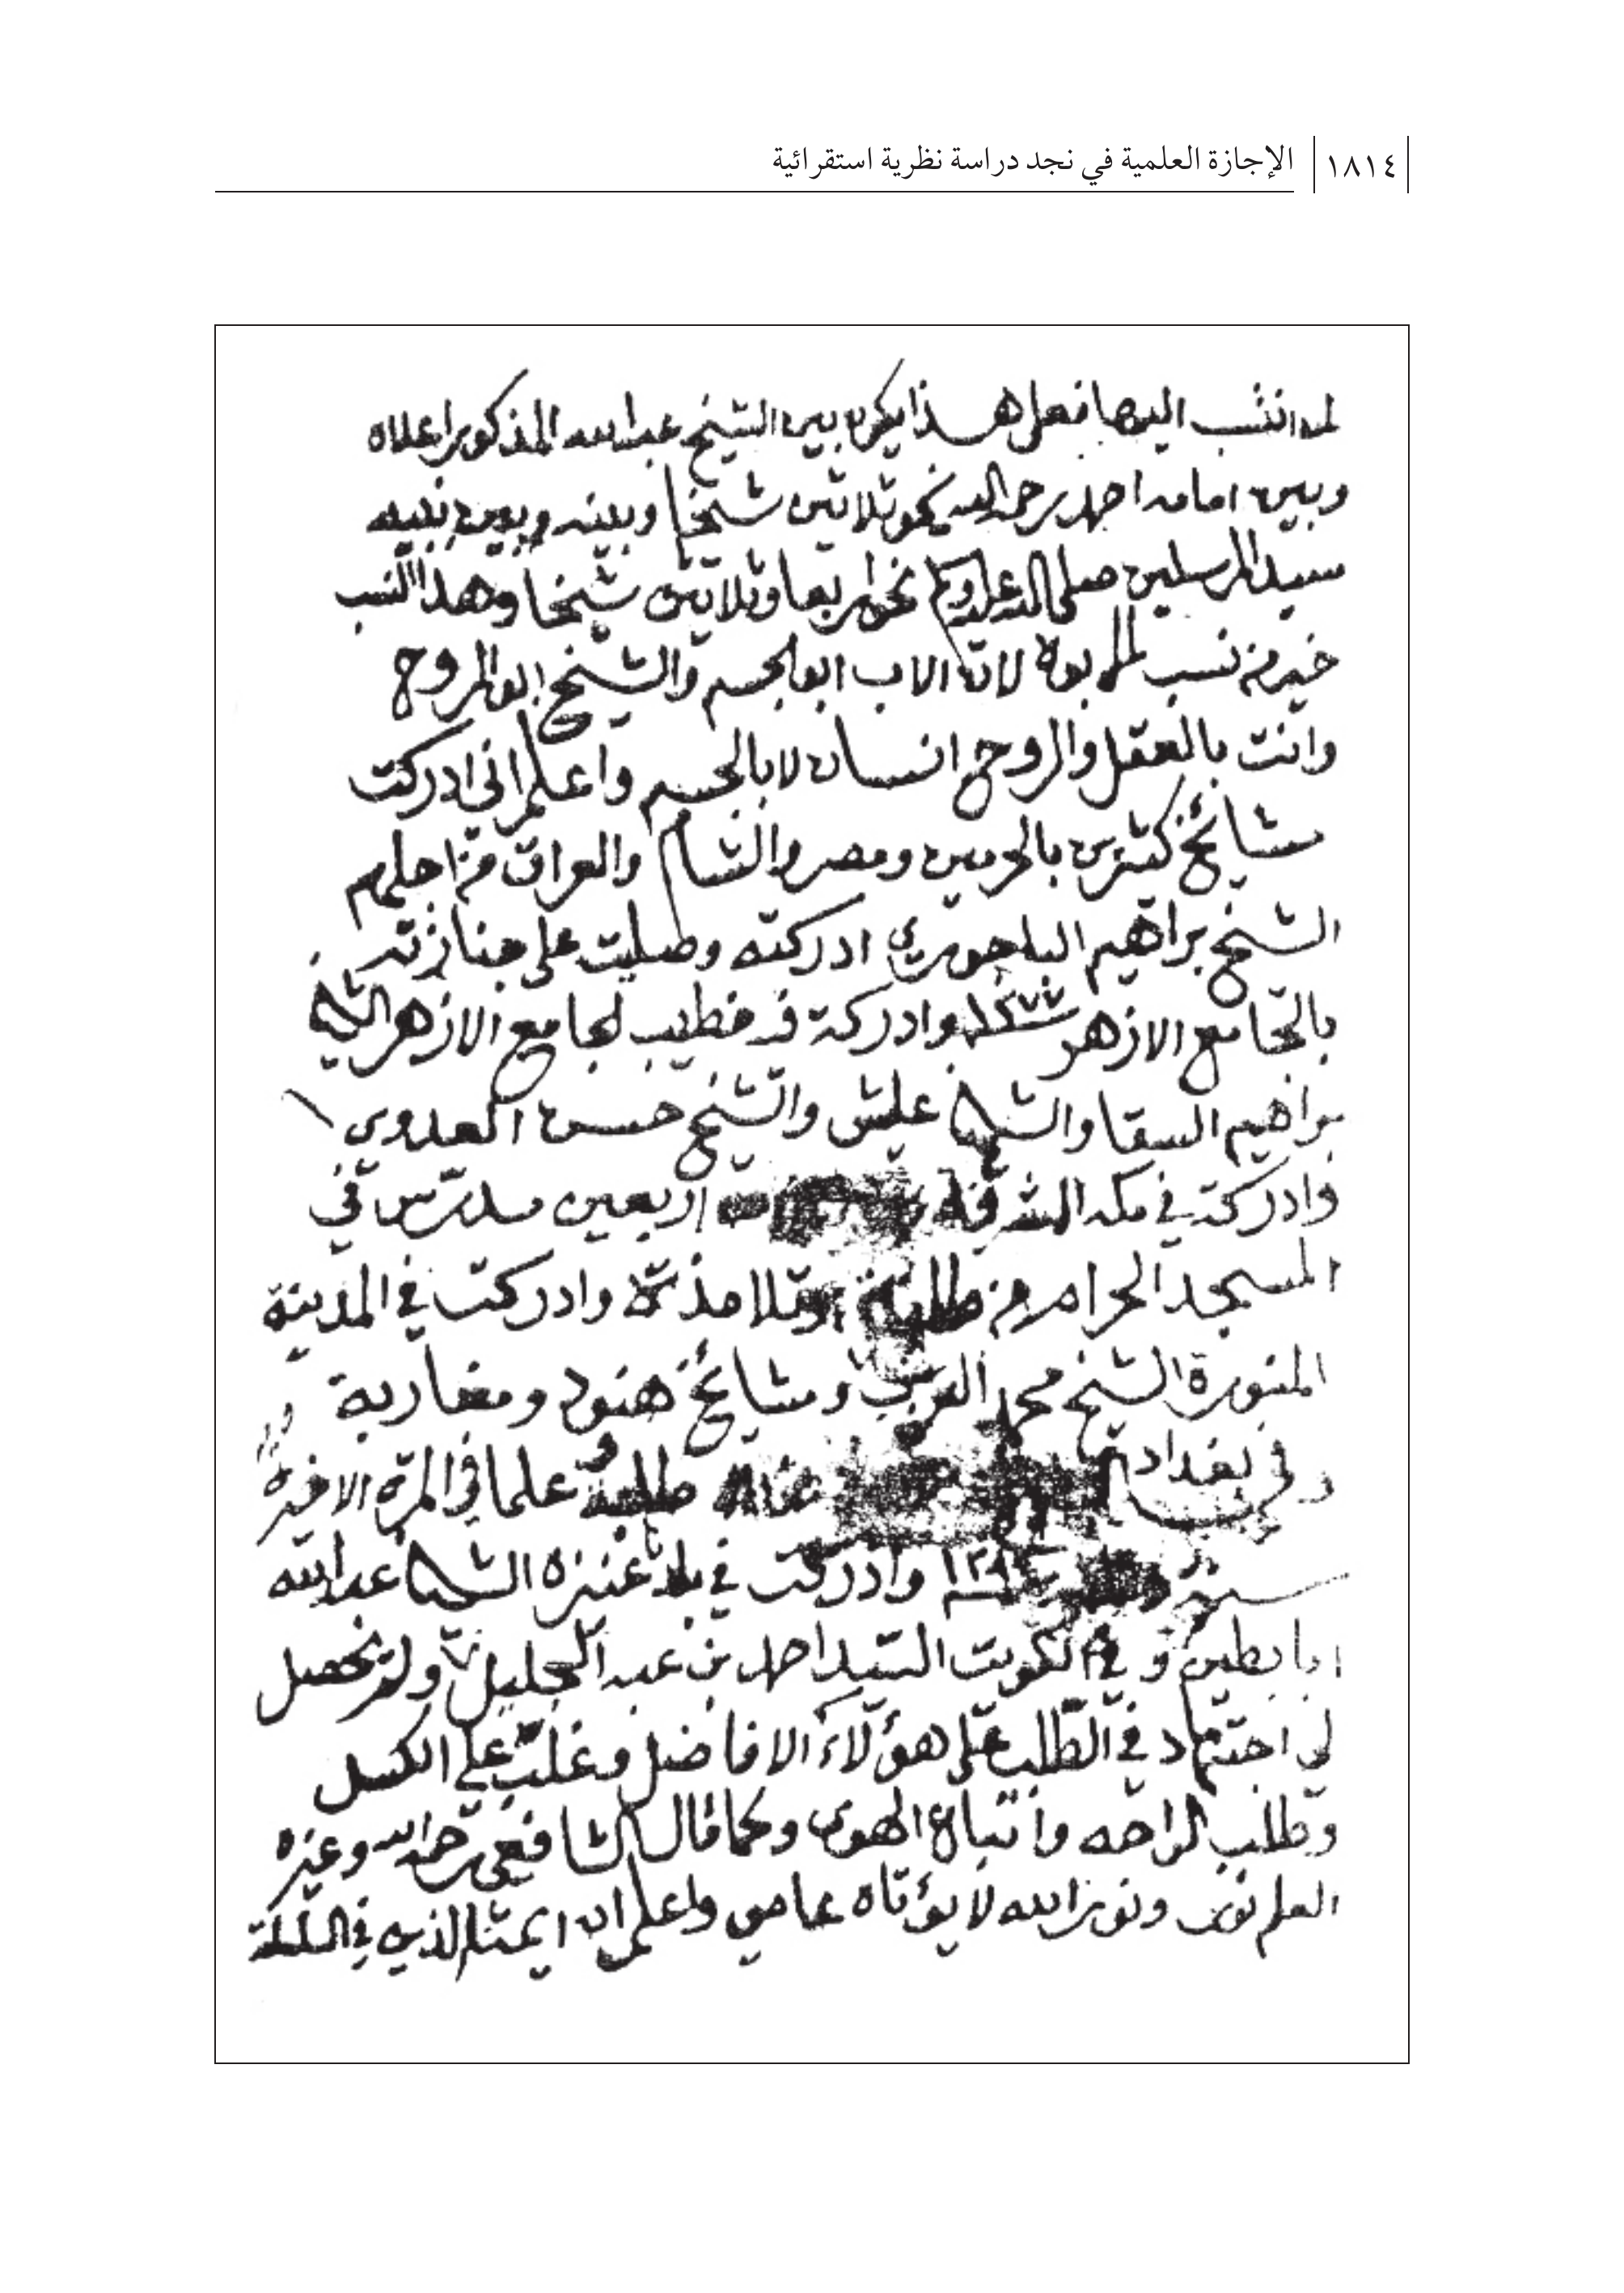 ١٨١٤ الإجازة العلمية في نجد دراسة نظرية استقرائية
لمن انتسب اليها فعلى هذا يكون بين الشيخ عبدالله المذكور اعلاه
وبين امامه احمد رحمه الله نحو ثلاثين شيخا وبينه وبين نبيه
سيد المرسلين صلى الله عليه وسلم نحو اربعا وثلاثين شيخا وهذا النسب
خير من نسب الابوة لان الاب ابو الجسم والشيخ ابو الروح
وانت بالعقل والروح انسان لا بالجسم واعلم اني ادركت
مشائخ كثيرين بالحرمين ومصر والشام والعراق من اجلهم
الشيخ براهيم الباجوري ادركته وصليت على جنازته
بالجامع الازهر وادركة فيه خطيب لجامع الازهر الشيخ
براهيم السقا والشيخ عليش والشيخ حسن العدوي
وادركة في مكه المشرفة اربعين مدرس في
المسجد الحرام من وتلامذته وادركت في المدينة
المنورة الشيخ محمد العزب ومشائخ هنود ومغاربة
وفي بغداد طلبة علما في المرة الاخيرة
سنة وادركت في بلد عنيزه الشيخ عبدالله
ابا بطين وفي الكويت السيد احمد بن عبد الجليل ولم يحصل
لي اجتهاد في الطلب على هؤلاء الافاضل وغلب علي الكسل
وطلب الراحه واتباع الهوى وكما قال الشافعي رحمه الله وغيره
العلم نور ونور الله لا يؤتاه عاصي واعلم ان ايمتنا الذين في السلسلة